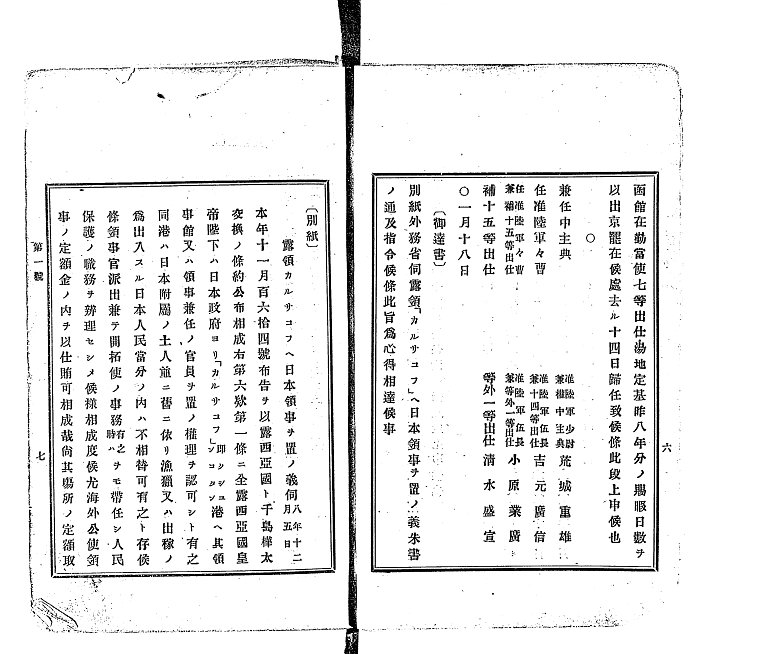 六
函館在勤當使七等出仕湯地定基昨八年分ノ賜暇日數ヲ
以出京罷在候處去ル十四日歸任致候條此段上申候也
〇
兼任中主典 准陸軍少尉兼權中主典 荒城重雄
任准陸軍々曹 准陸軍伍長兼十四等出仕 吉元廣信
任准陸軍々曹兼補十五等出仕 准陸軍伍長兼等外一等出仕 小原業廣
補十五等出仕 等外一等出仕 淸水盛宣
〇一月十八日
〔御達書〕
別紙外務省伺露領「カルサコフ」ヘ日本領事ヲ置ノ義朱書
ノ通及指令候條此旨爲心得相達候事
〔別紙〕
露領カルサコフヘ日本領事ヲ置ノ義伺 八年十二月五日
本年十一月百六拾四號布告ヲ以露西亞國ト千島樺太
交換ノ條約公布相成右第六欵第一條ニ全露西亞國皇
帝陛下ハ日本政府ヨリ「カルサコフ」即クシュンコタン港ヘ其領
事館又ハ領事兼任ノ官員ヲ置ノ權理ヲ認可シト有之
同港ハ日本附屬ノ土人並ニ舊ニ依リ漁獵又ハ出稼ノ
爲出入スル日本人民當分ノ内ハ不相替可有之ト存候
條領事官派出兼テ開拓使ノ事務有之時ハヲモ帶任シ人民
保護ノ職務ヲ辨理セシメ候樣相成度候尤海外公使領
事ノ定額金ノ内ヲ以仕賄可相成哉尙其場所ノ定額取
第一號
七